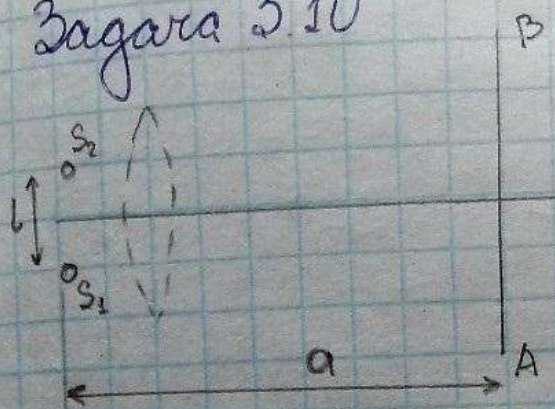 Задача 3.10
B
S₂
l
S₁
a
A